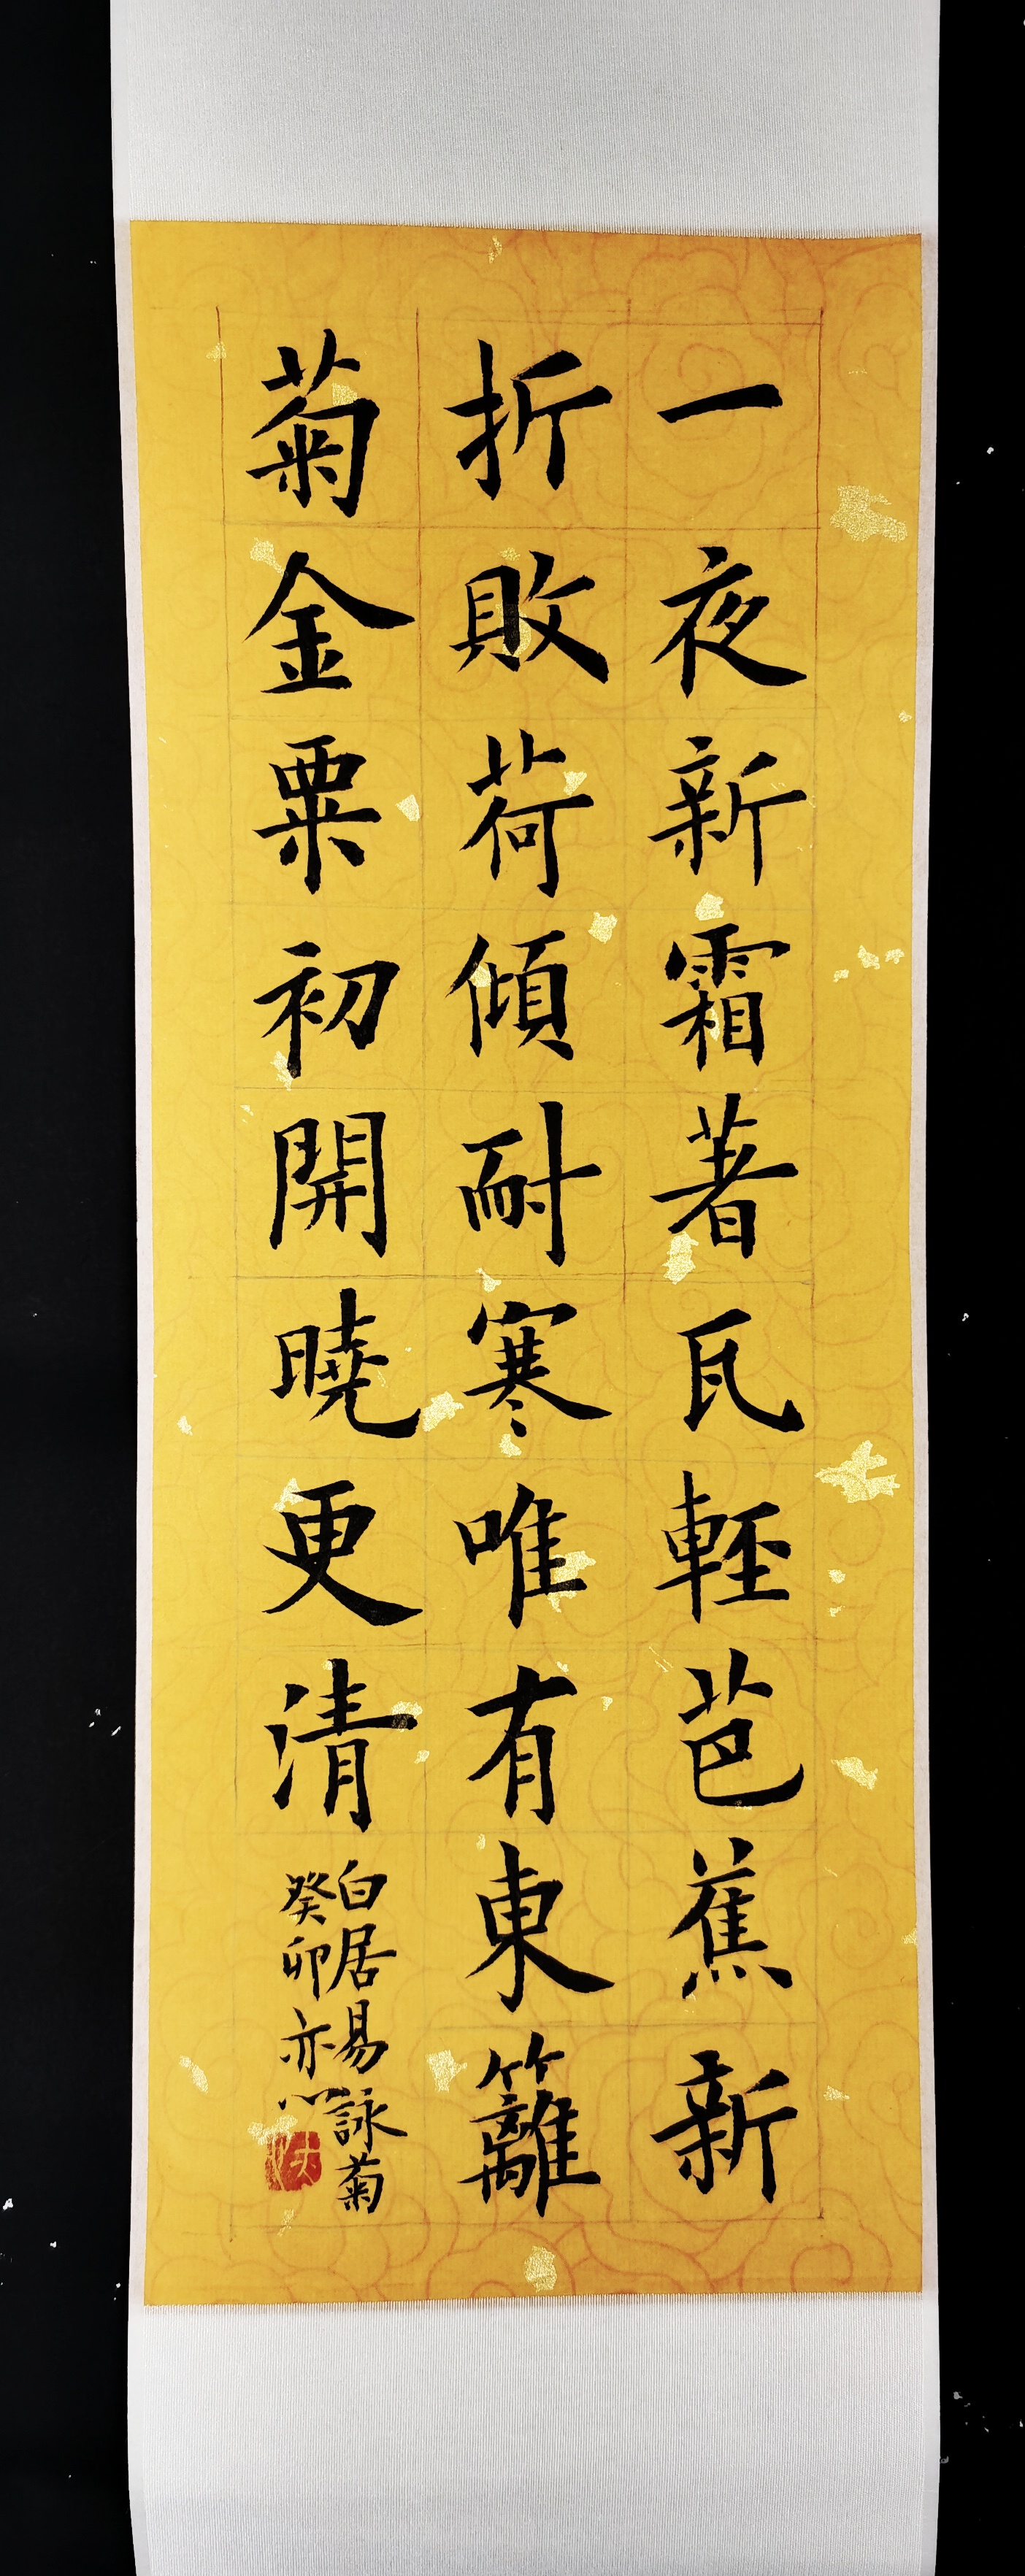 一夜新霜著瓦輕芭蕉新
折敗荷傾耐寒唯有東籬
菊金粟初開曉更清
白居易詠菊
癸卯亦心